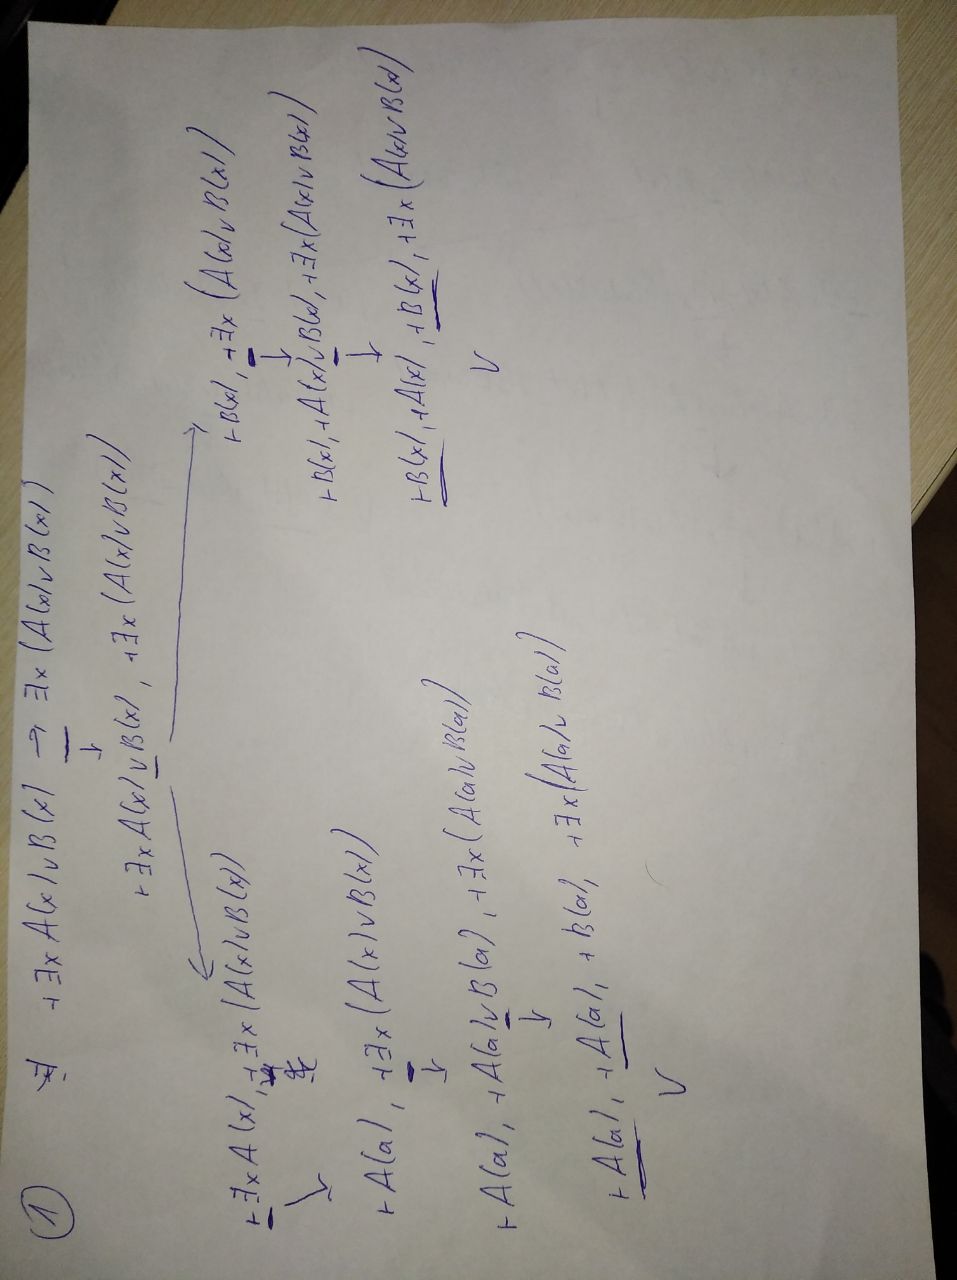 ① ⊣ ∃x A(x) ∨ B(x) → ∃x (A(x) ∨ B(x))
↓
⊢ ∃x A(x) ∨ B(x), ⊣ ∃x (A(x) ∨ B(x))
⊢ ∃x A(x), ⊣ ∃x (A(x) ∨ B(x))
↓
⊢ A(a), ⊣ ∃x (A(x) ∨ B(x))
↓
⊢ A(a), ⊣ A(a) ∨ B(a), ⊣ ∃x (A(a) ∨ B(a))
↓
⊢ A(a), ⊣ A(a), ⊣ B(a), ⊣ ∃x (A(a) ∨ B(a))
V
⊢ B(x), ⊣ ∃x (A(x) ∨ B(x))
↓
⊢ B(x), ⊣ A(x) ∨ B(x), ⊣ ∃x (A(x) ∨ B(x))
↓
⊢ B(x), ⊣ A(x), ⊣ B(x), ⊣ ∃x (A(x) ∨ B(x))
V